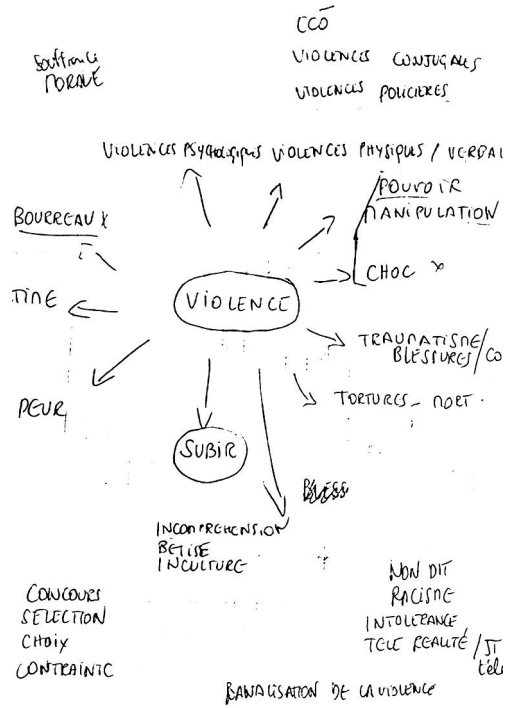 CCO
SOUFFRANCE
MORALE
VIOLENCES CONJUGALES
VIOLENCES POLICIERES
VIOLENCES PSYCHOLOGIQUES VIOLENCES PHYSIQUES / VERBAL
POUVOIR
MANIPULATION
BOURREAU X
CHOC X
TIME
VIOLENCE
TRAUMATISME /
BLESSURES / CO
TORTURES - MORT.
PEUR
SUBIR
INCOMPREHENSION
BETISE
INCULTURE
CONCOURS
SELECTION
CHOIX
CONTRAINTE
NON DIT
RACISME
INTOLERANCE,
TELE REALITE / JT
télé
BANALISATION DE LA VIOLENCE